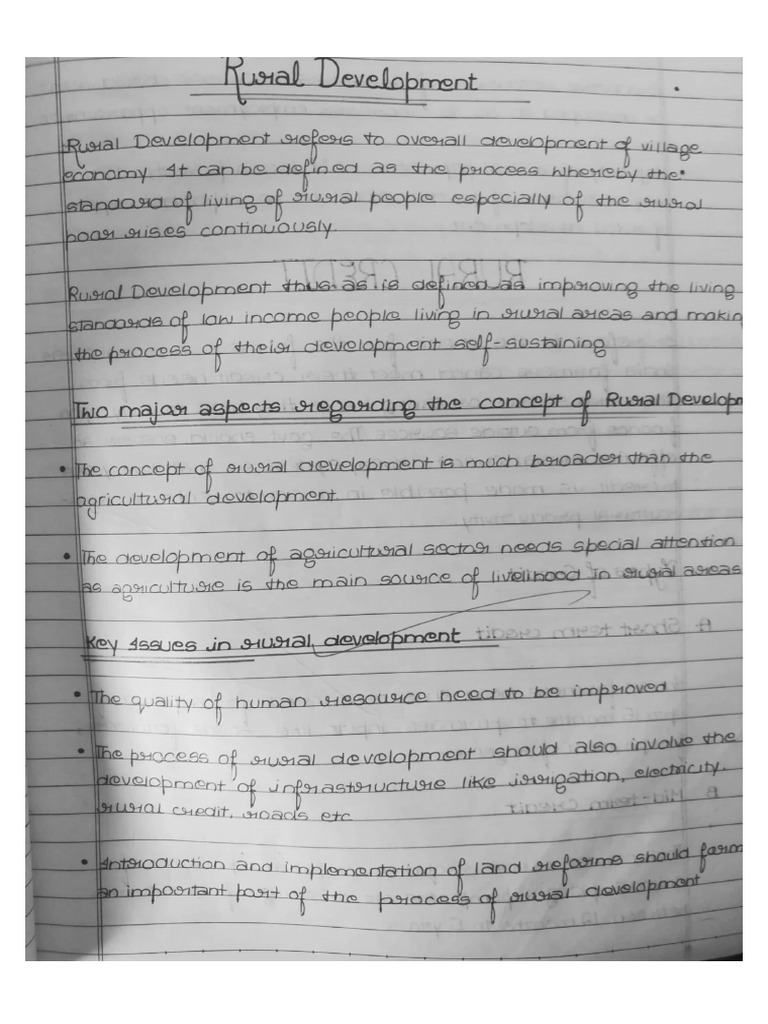 Rural Development
Rural Development refers to overall development of village
economy. It can be defined as the process whereby the
standard of living of rural people especially of the rural
poor rises continuously.
Rural Development thus as is defined as improving the living
standards of low income people living in rural areas and making
the process of their development self-sustaining
Two major aspects regarding the concept of Rural Developm
• The concept of rural development is much broader than the
agricultural development
• The development of agricultural sector needs special attention
as agriculture is the main source of livelihood in rural areas
Key Issues in rural development
• The quality of human resource need to be improved
• The process of rural development should also involve the
development of infrastructure like irrigation, electricity,
rural credit, roads etc
• Introduction and implementation of land reforms should form
an important part of the process of rural development